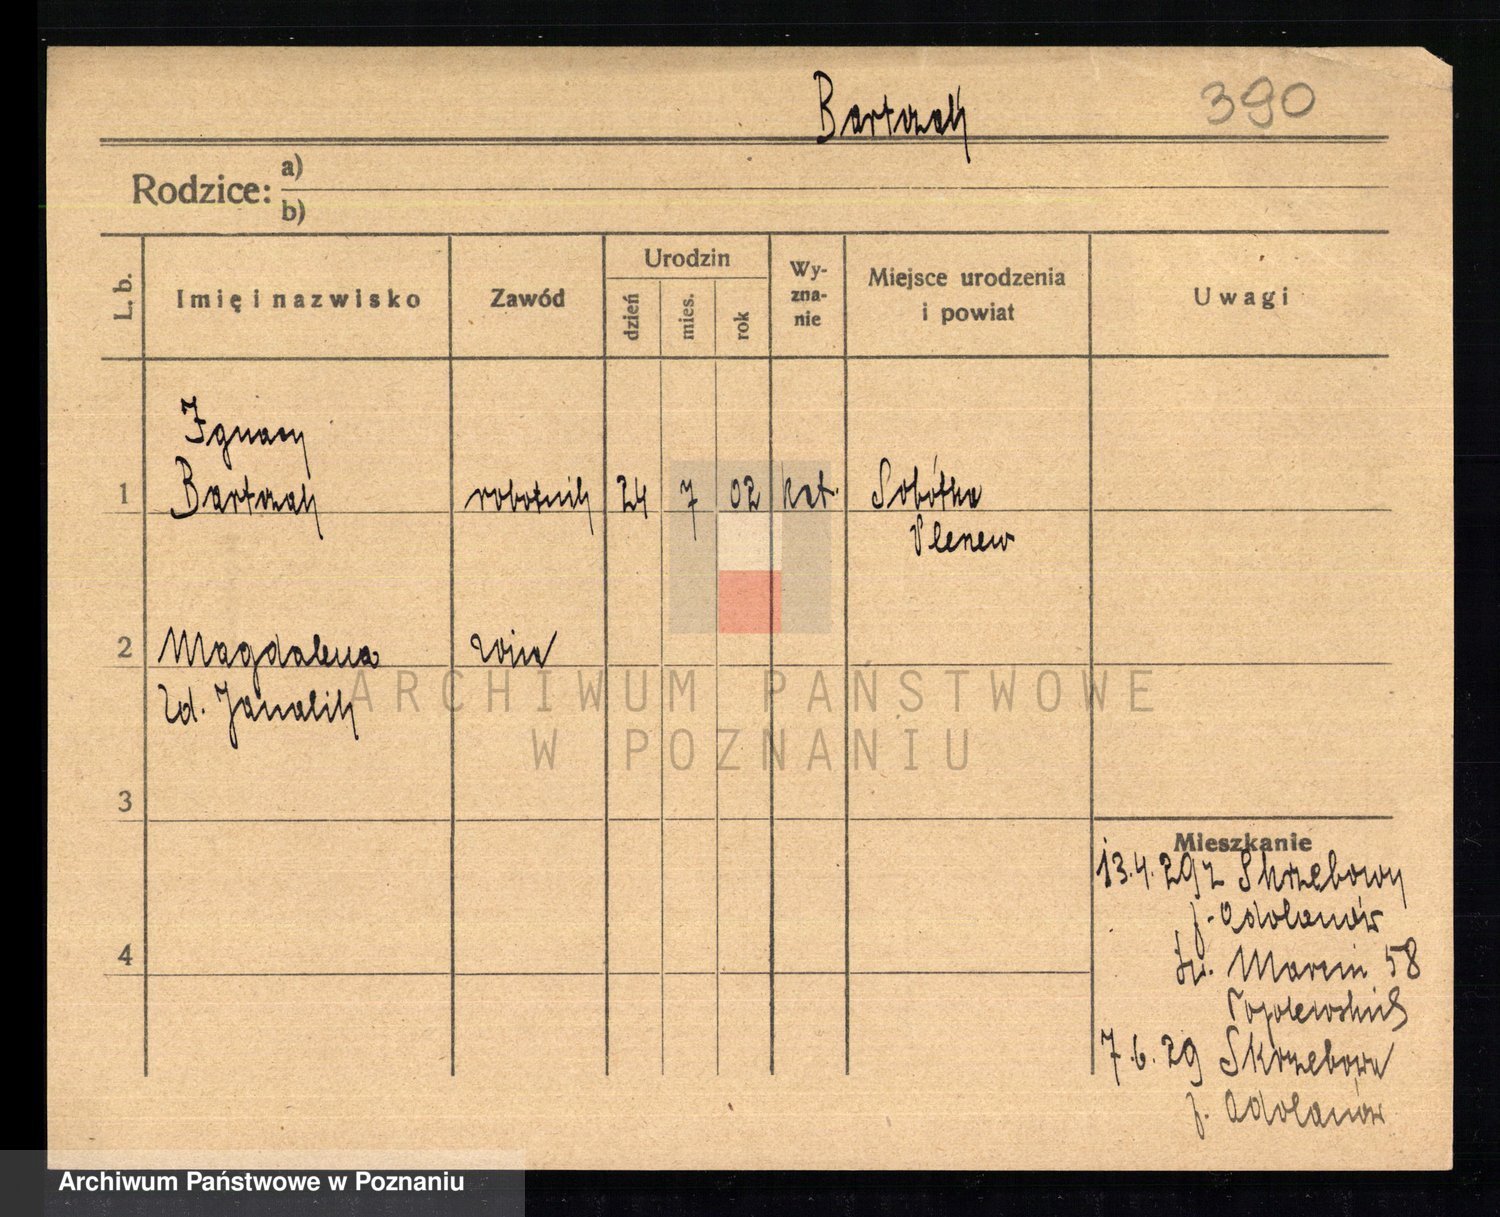 Bartczak
390
Rodzice:
a)
b)
L. b.
Imię i nazwisko
Zawód
Urodzin
dzień
mies.
rok
Wy-
zna-
nie
Miejsce urodzenia
i powiat
Uwagi
Ignacy
1 Bartczak robotnik 24 7 02 kat. Sobótka
Plenew
2 Magdalena żona
zd. Janalik
3
4
Mieszkanie
13.4.29 z Skrzebowy
p. Adolanów
św. Marcin 58
7.6.29 Skrzebowa
p. Adolanów
ARCHIWUM PAŃSTWOWE
W POZNANIU
Archiwum Państwowe w Poznaniu